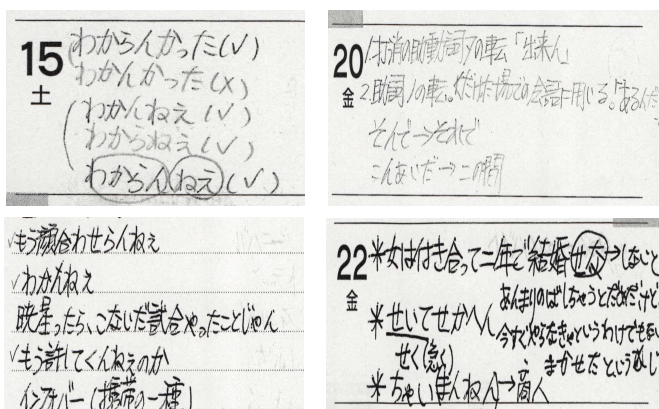 15
土
わからんかった(✓)
わかんかった(×)
わかんねえ(✓)
わからねえ(✓)
わからんねえ(✓)
20
金
1.打消の助動詞ヌの転「出来ん」
2.助詞ノの転。くだけた場での会話に用いる。「あるんだ
そんで→それで
こんあいだ→この間
✓もう顔合わせらんねえ
✓わかんねえ
暁星ったら、こないだ試合やったことじゃん
✓もう許してくんねえのか
インフォバー(携帯の一種)
22
金
*女は付き合って二年で結婚せな→しないと
あんまりのばしちゃうとだめだけど
*せいてせかへん 今すぐやらなきゃというわけでもない
せく(急く) まかせたという感じ
*ちゃいまんねん→商人